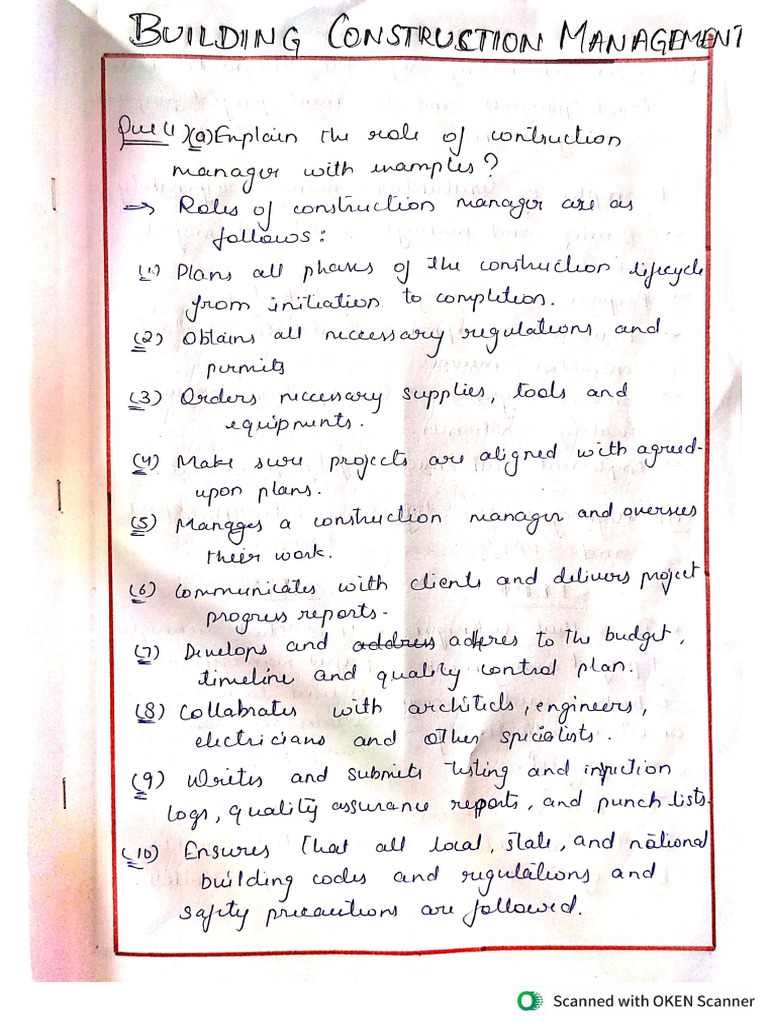 BUILDING CONSTRUCTION MANAGEMENT
Que 4)(a) Explain the role of contruction
manager with examples?
⇒ Roles of construction manager are as
follows:
(1) Plans all phases of the construction lifecycle
from initiation to completion.
(2) Obtains all neccessary regulations and
permits
(3) Orders neccessary supplies, tools and
equipments.
(4) Make sure projects are aligned with agreed-
upon plans.
(5) Manages a construction manager and oversees
their work.
(6) Communicates with clients and delivers project
progress reports.
(7) Develops and address adheres to the budget,
timeline and quality control plan.
(8) Collabrates with architects, engineers,
electricians and other specialists.
(9) Writes and submits testing and inpection
logs, quality assurance reports, and punch lists.
(10) Ensures that all local, state, and national
building codes and regulations and
safity precautions are followed.
Scanned with OKEN Scanner